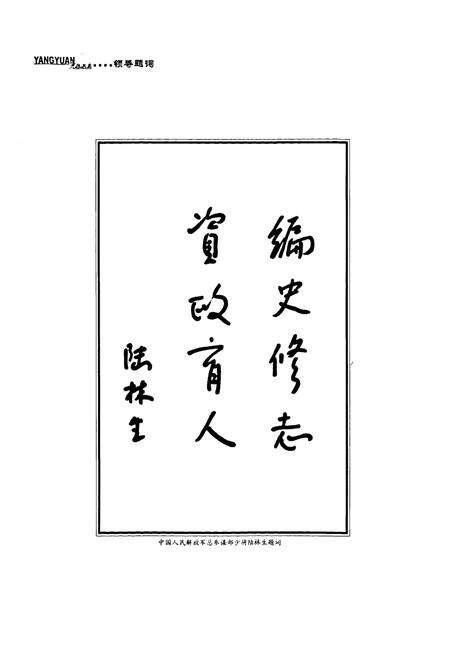 YANGYUAN ····领导题词
编史修志
資政育人
陆林生
中国人民解放军总参谋部少将陆林生题词